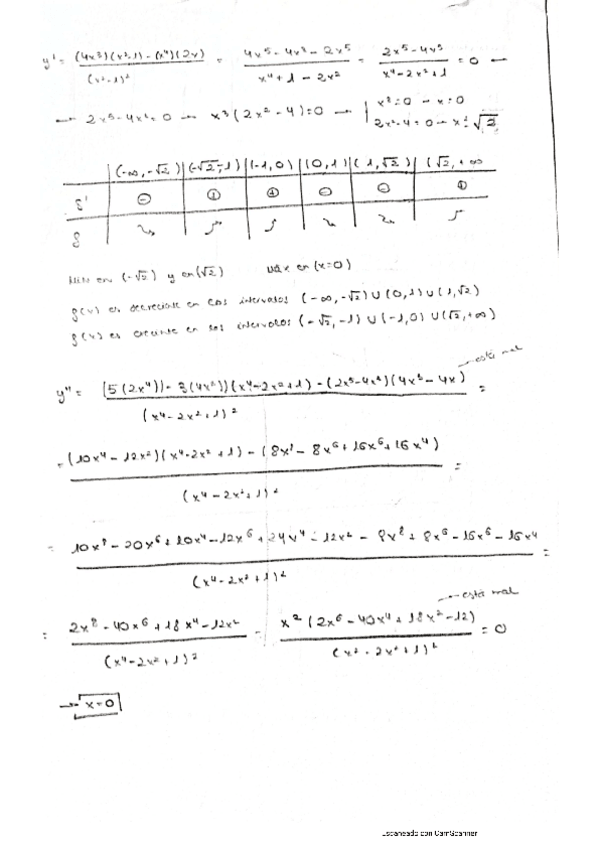 y' = (4x³)(x²-1) - (x⁴)(2x) / (x²-1)² = 4x⁵ - 4x³ - 2x⁵ / x⁴ + 1 - 2x² = 2x⁵ - 4x³ / x⁴ - 2x² + 1 = 0 →
→ 2x⁵ - 4x³ = 0 → x³(2x² - 4) = 0 → { x³ = 0 → x = 0
2x² - 4 = 0 → x = ±√2
(-∞, -√2) | (-√2, -1) | (-1, 0) | (0, 1) | (1, √2) | (√2, +∞
f' | ⊖ | ⊕ | ⊕ | ⊖ | ⊖ | ⊕
f
Min en (-√2) y en (√2) Máx en (x=0)
f(x) es decreciente en los intervalos (-∞, -√2) ∪ (0, 1) ∪ (1, √2)
f(x) es creciente en los intervalos (-√2, -1) ∪ (-1, 0) ∪ (√2, +∞)
está mal
y'' = [5(2x⁴)) - 3(4x²))(x⁴ - 2x² + 1) - (2x⁵ - 4x³)(4x³ - 4x) / (x⁴ - 2x² + 1)² =
= (10x⁴ - 12x²)(x⁴ - 2x² + 1) - (8x⁸ - 8x⁶ + 16x⁶ + 16x⁴) / (x⁴ - 2x² + 1)² =
= 10x⁸ - 20x⁶ + 10x⁴ - 12x⁶ + 24x⁴ - 12x² - 8x⁸ + 8x⁶ - 16x⁶ - 16x⁴ / (x⁴ - 2x² + 1)² =
está mal
= 2x⁸ - 40x⁶ + 18x⁴ - 12x² / (x⁴ - 2x² + 1)² = x²(2x⁶ - 40x⁴ + 18x² - 12) / (x² - 2x² + 1)² = 0
→ x = 0
Escaneado con CamScanner